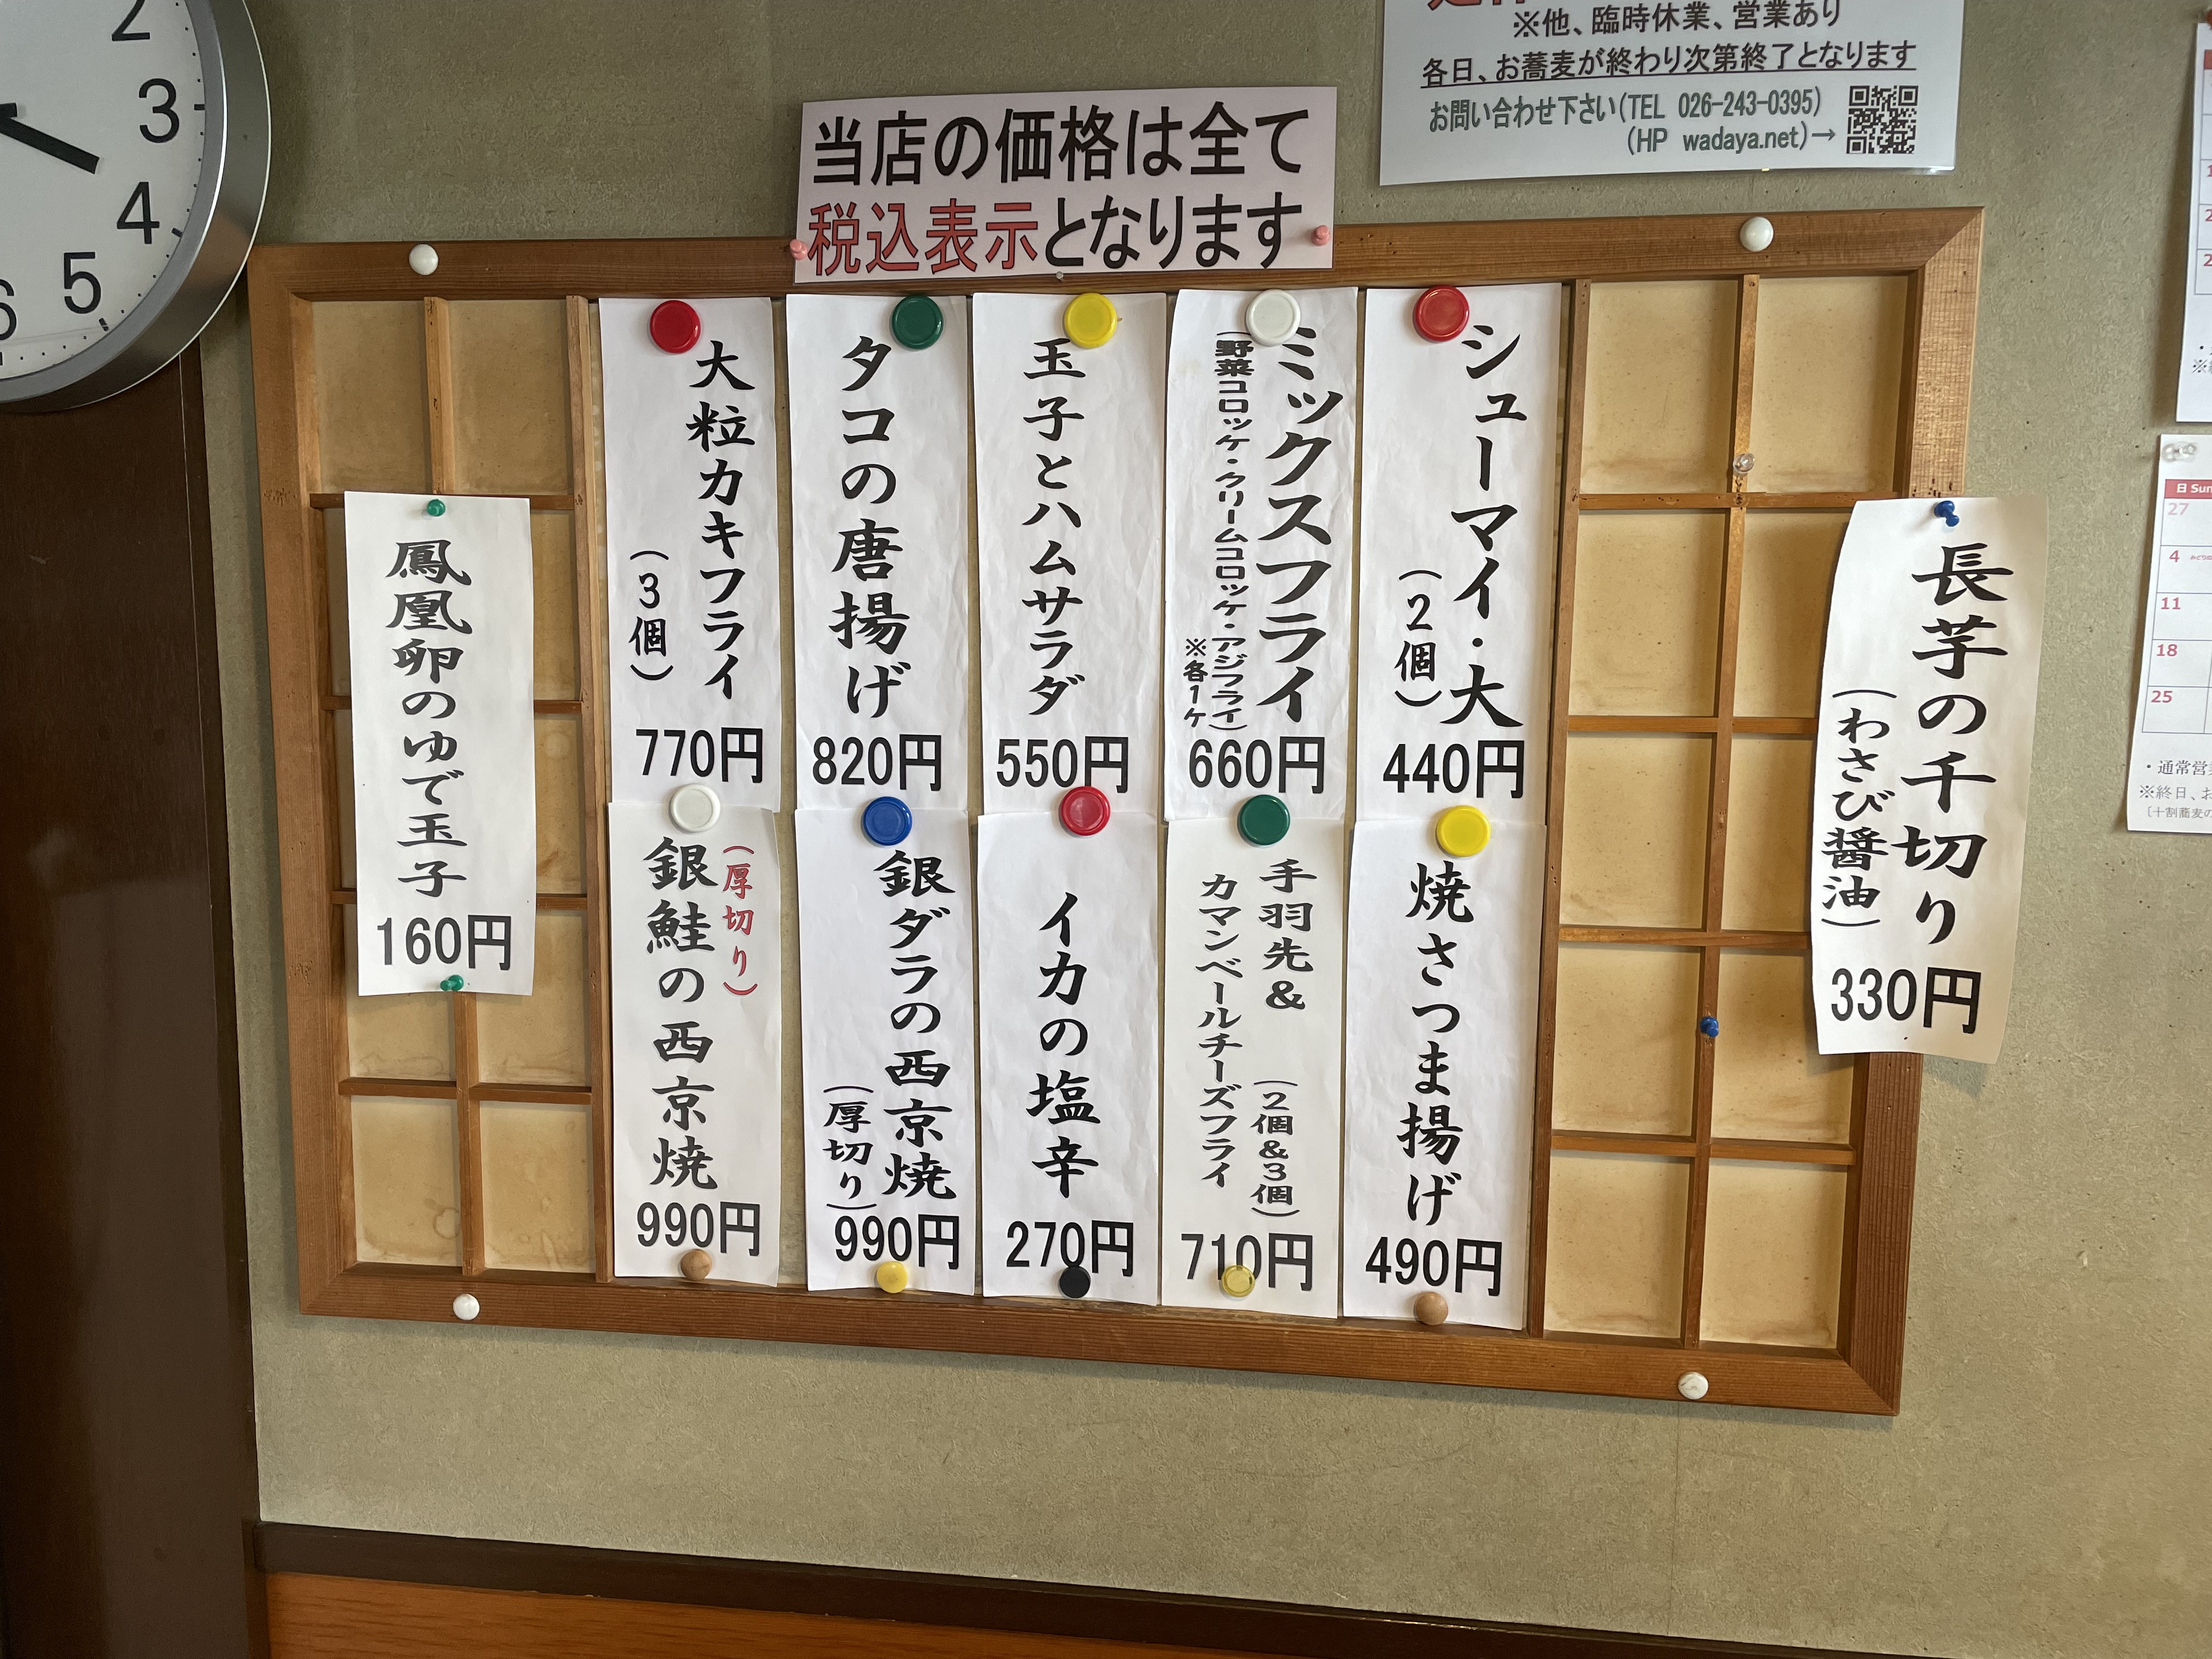 ※他、臨時休業、営業あり
各日、お蕎麦が終わり次第終了となります
お問い合わせ下さい(TEL 026-243-0395)
(HP wadaya.net)→
当店の価格は全て
税込表示となります
長芋の千切り
(わさび醤油)
330円
シューマイ・大
(2個)
440円
ミックスフライ
(野菜コロッケ・クリームコロッケ・アジフライ)
※各1ケ
660円
玉子とハムサラダ
550円
タコの唐揚げ
820円
大粒カキフライ
(3個)
770円
焼さつま揚げ
490円
手羽先&
カマンベールチーズフライ
(2個&3個)
710円
イカの塩辛
270円
銀ダラの西京焼
(厚切り)
990円
(厚切り)
銀鮭の西京焼
990円
鳳凰卵のゆで玉子
160円
2
3
4
5
6
日 Sun
27
4
11
18
25
・通常営
※終日、お